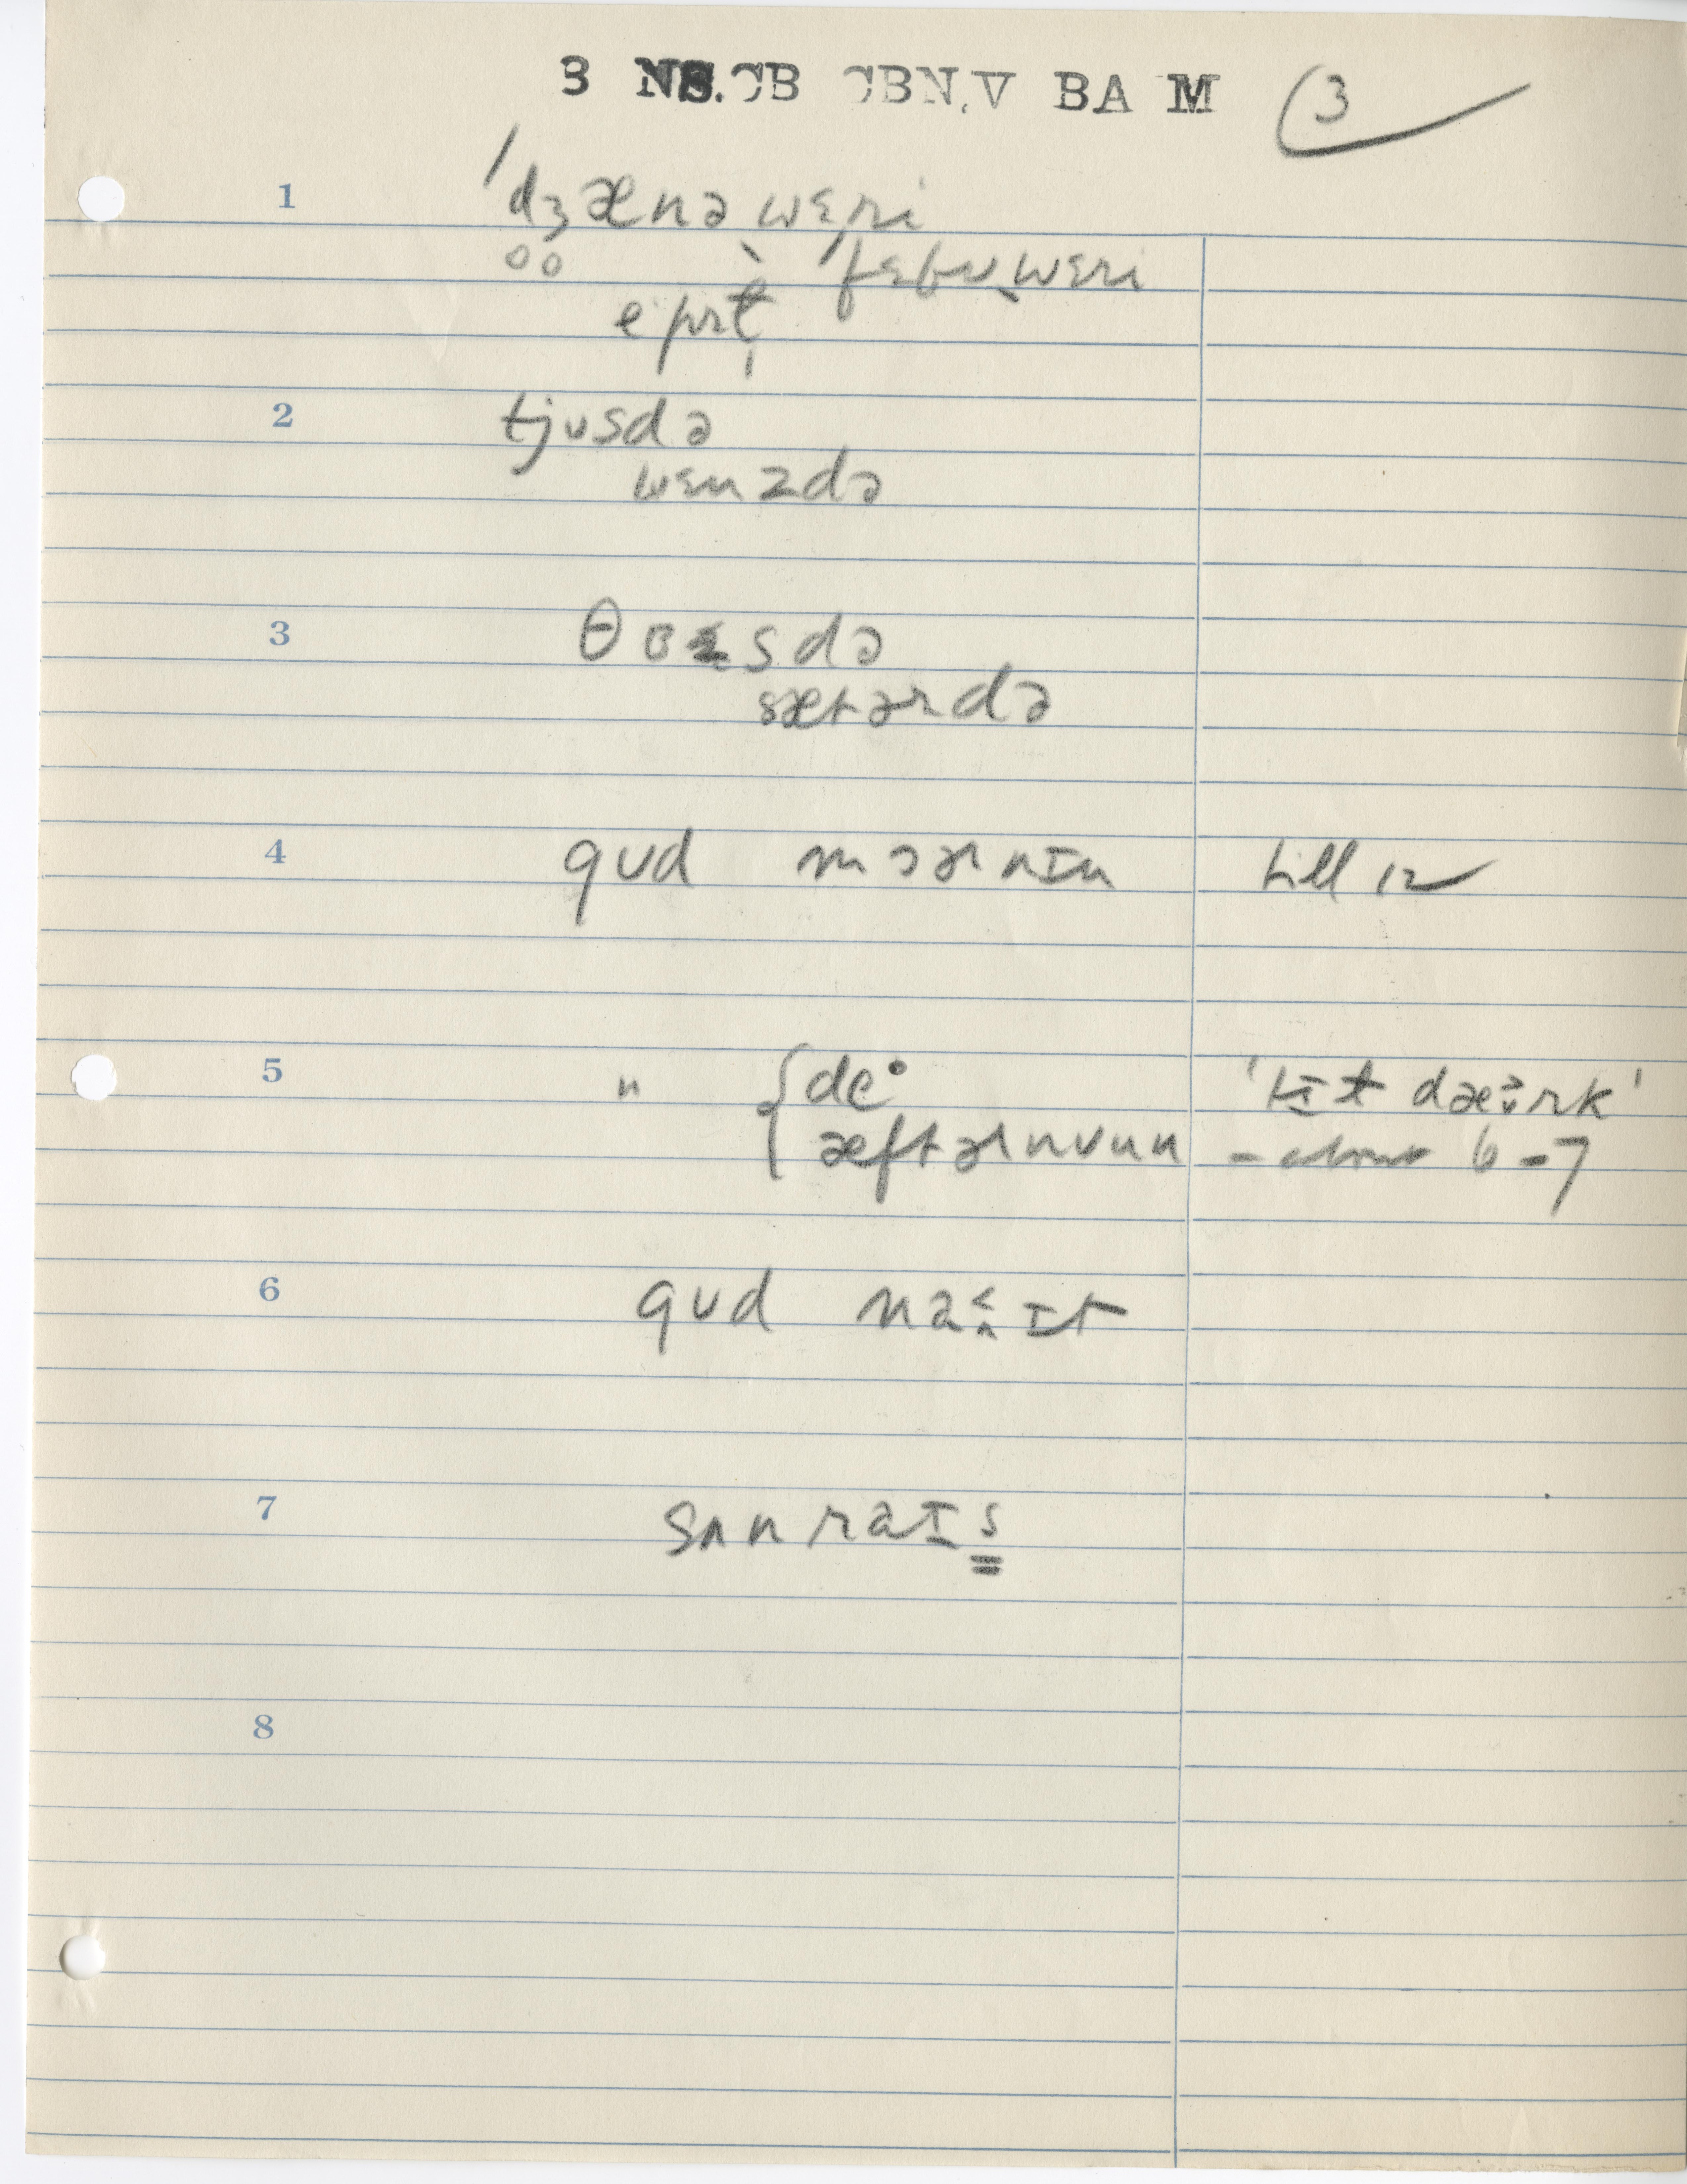 3 NS.CB CBN.V BA M 3
1 ˈdʒænəˌwɛri
ˈfɛbuˌwɛri
eprɪ̨l
2 tjusdə
wɛnzdə
3 θɞsdə
sætərdə
4 gud mɔɚnɪn till 12
5 " { de·
æftɚnuun
'tɪl dæɚrk'
- about 6-7
6 gud naˑɪt
7 sʌnraɪs
8